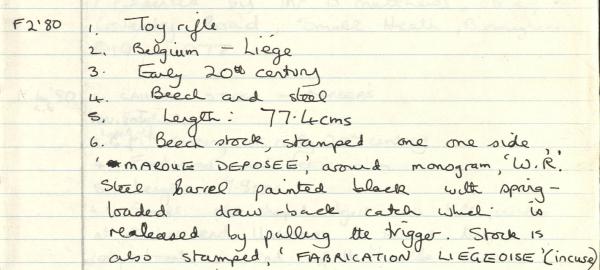 F2'80 1. Toy rifle
2. Belgium - Liége
3. Early 20th century
4. Beech and steel
5. Length: 77.4cms
6. Beech stock, stamped one one side
'MARQUE DEPOSEE', around monogram, 'W.R'.
Steel barrel painted black with spring-
loaded draw-back catch which is
realeased by pulling the trigger. Stock is
also stamped, 'FABRICATION LIÉGEOISE' (incuse)